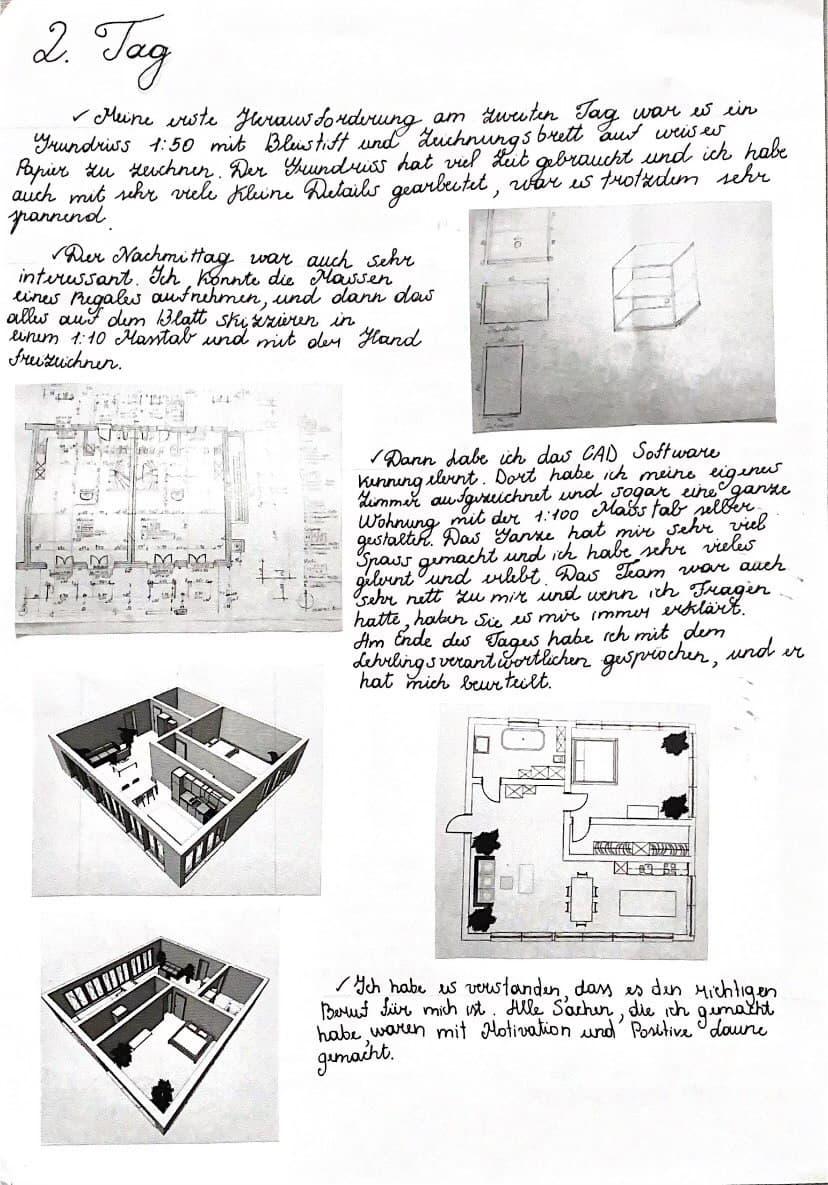 2. Tag
✓ Meine erste Herausforderung am zweiten Tag war es ein
Grundriss 1:50 mit Bleistift und Zeichnungsbrett auf weises
Papier zu zeichnen. Der Grundriss hat viel Zeit gebraucht und ich habe
auch mit sehr viele kleine Details gearbeitet, war es trotzdem sehr
spannend.
✓Der Nachmittag war auch sehr
interessant. Ich konnte die Massen
eines Regales aufnehmen, und dann das
alles auf dem Blatt skizzieren in
einem 1:10 Masstab und mit der Hand
freizeichnen.
✓Dann habe ich das CAD Software
kennengelernt. Dort habe ich meine eigenes
Zimmer aufgezeichnet und sogar eine ganze
Wohnung mit der 1:100 Massstab selber
gestaltet. Das Ganze hat mir sehr viel
Spass gemacht und ich habe sehr vieles
gelernt und erlebt. Das Team war auch
sehr nett zu mir und wenn ich Fragen
hatte, haben Sie es mir immer erklärt.
Am Ende des Tages habe ich mit dem
Lehrlingsverantwortlichen gesprochen, und er
hat mich beurteilt.
✓Ich habe es verstanden, dass es den richtigen
Beruf für mich ist. Alle Sachen, die ich gemacht
habe, waren mit Motivation und Positive Laune
gemacht.